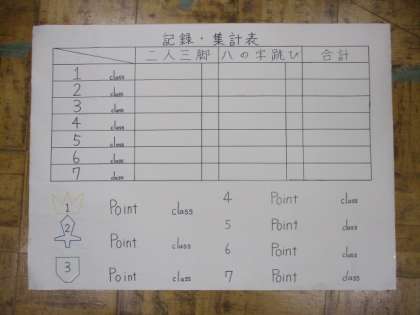 記録・集計表
二人三脚 八の字跳び 合計
1 class
2 class
3 class
4 class
5 class
6 class
7 class
1 Point class
2 Point class
3 Point class
4 Point class
5 Point class
6 Point class
7 Point class